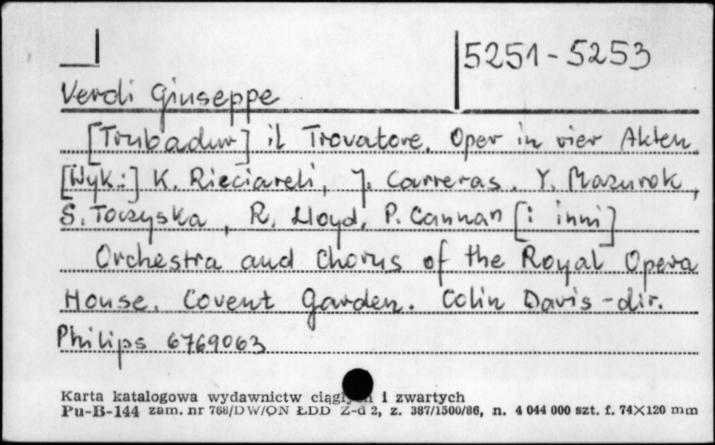 5251-5253
Verdi Giuseppe
[Trubadur] il Trovatore. Oper in vier Akten
[Wyk:] K. Rieciareli, J. Carreras. Y. Mazurok,
S. Toczyska, R. Lloyd, P. Cannan [i inni]
Orchestra and Chorus of the Royal Opera
House. Covent Garden. Colin Davis - dir.
Philips 6769063
Karta katalogowa wydawnictw ciągłych i zwartych
Pu-B-144 zam. nr 768/DW/ON ŁDD Z-d 2, z. 387/1500/86, n. 4 044 000 szt. f. 74×120 mm